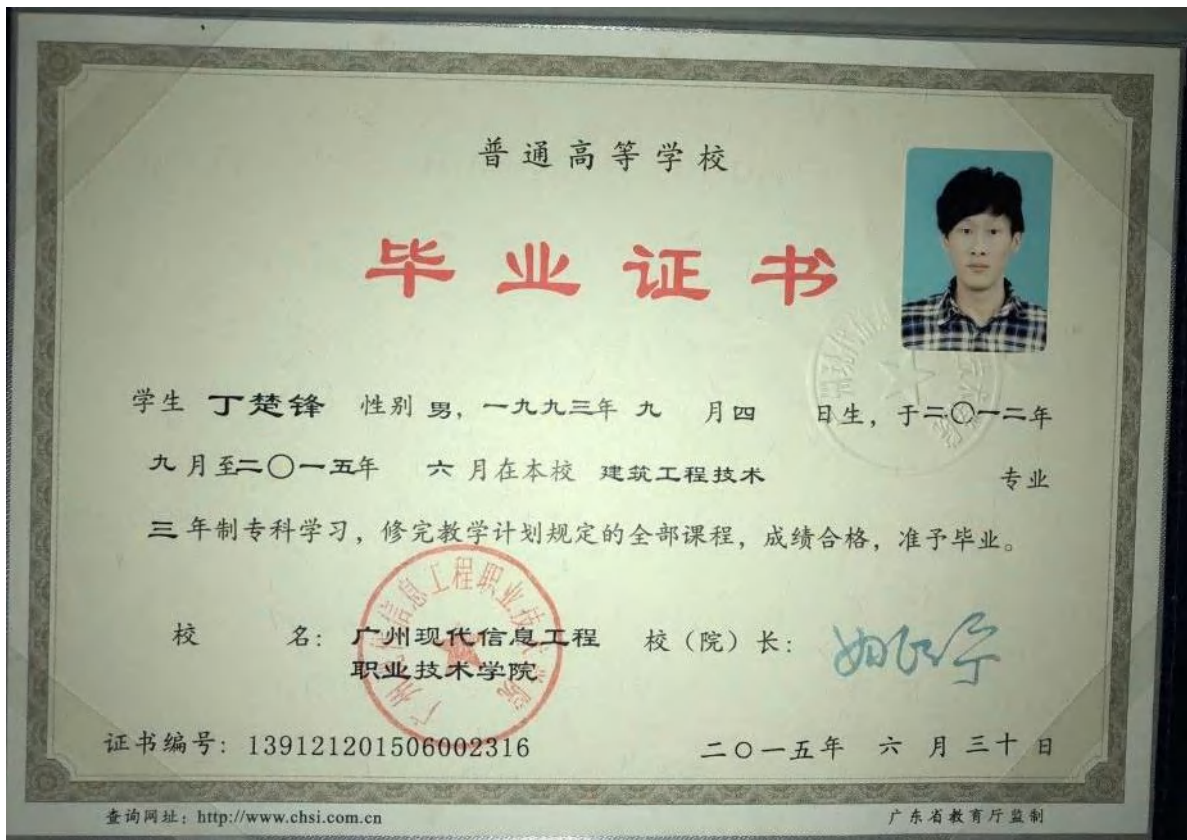 普通高等学校
毕业证书
学生 丁楚锋 性别 男，一九九三年 九 月四 日生，于二〇一二年
九 月至二〇一五年 六 月在本校 建筑工程技术 专业
三 年制专科学习，修完教学计划规定的全部课程，成绩合格，准予毕业。
校 名：广州现代信息工程 校（院）长：
职业技术学院
证书编号：139121201506002316 二〇一五年 六 月 三十 日
查询网址：http://www.chsi.com.cn 广东省教育厅监制